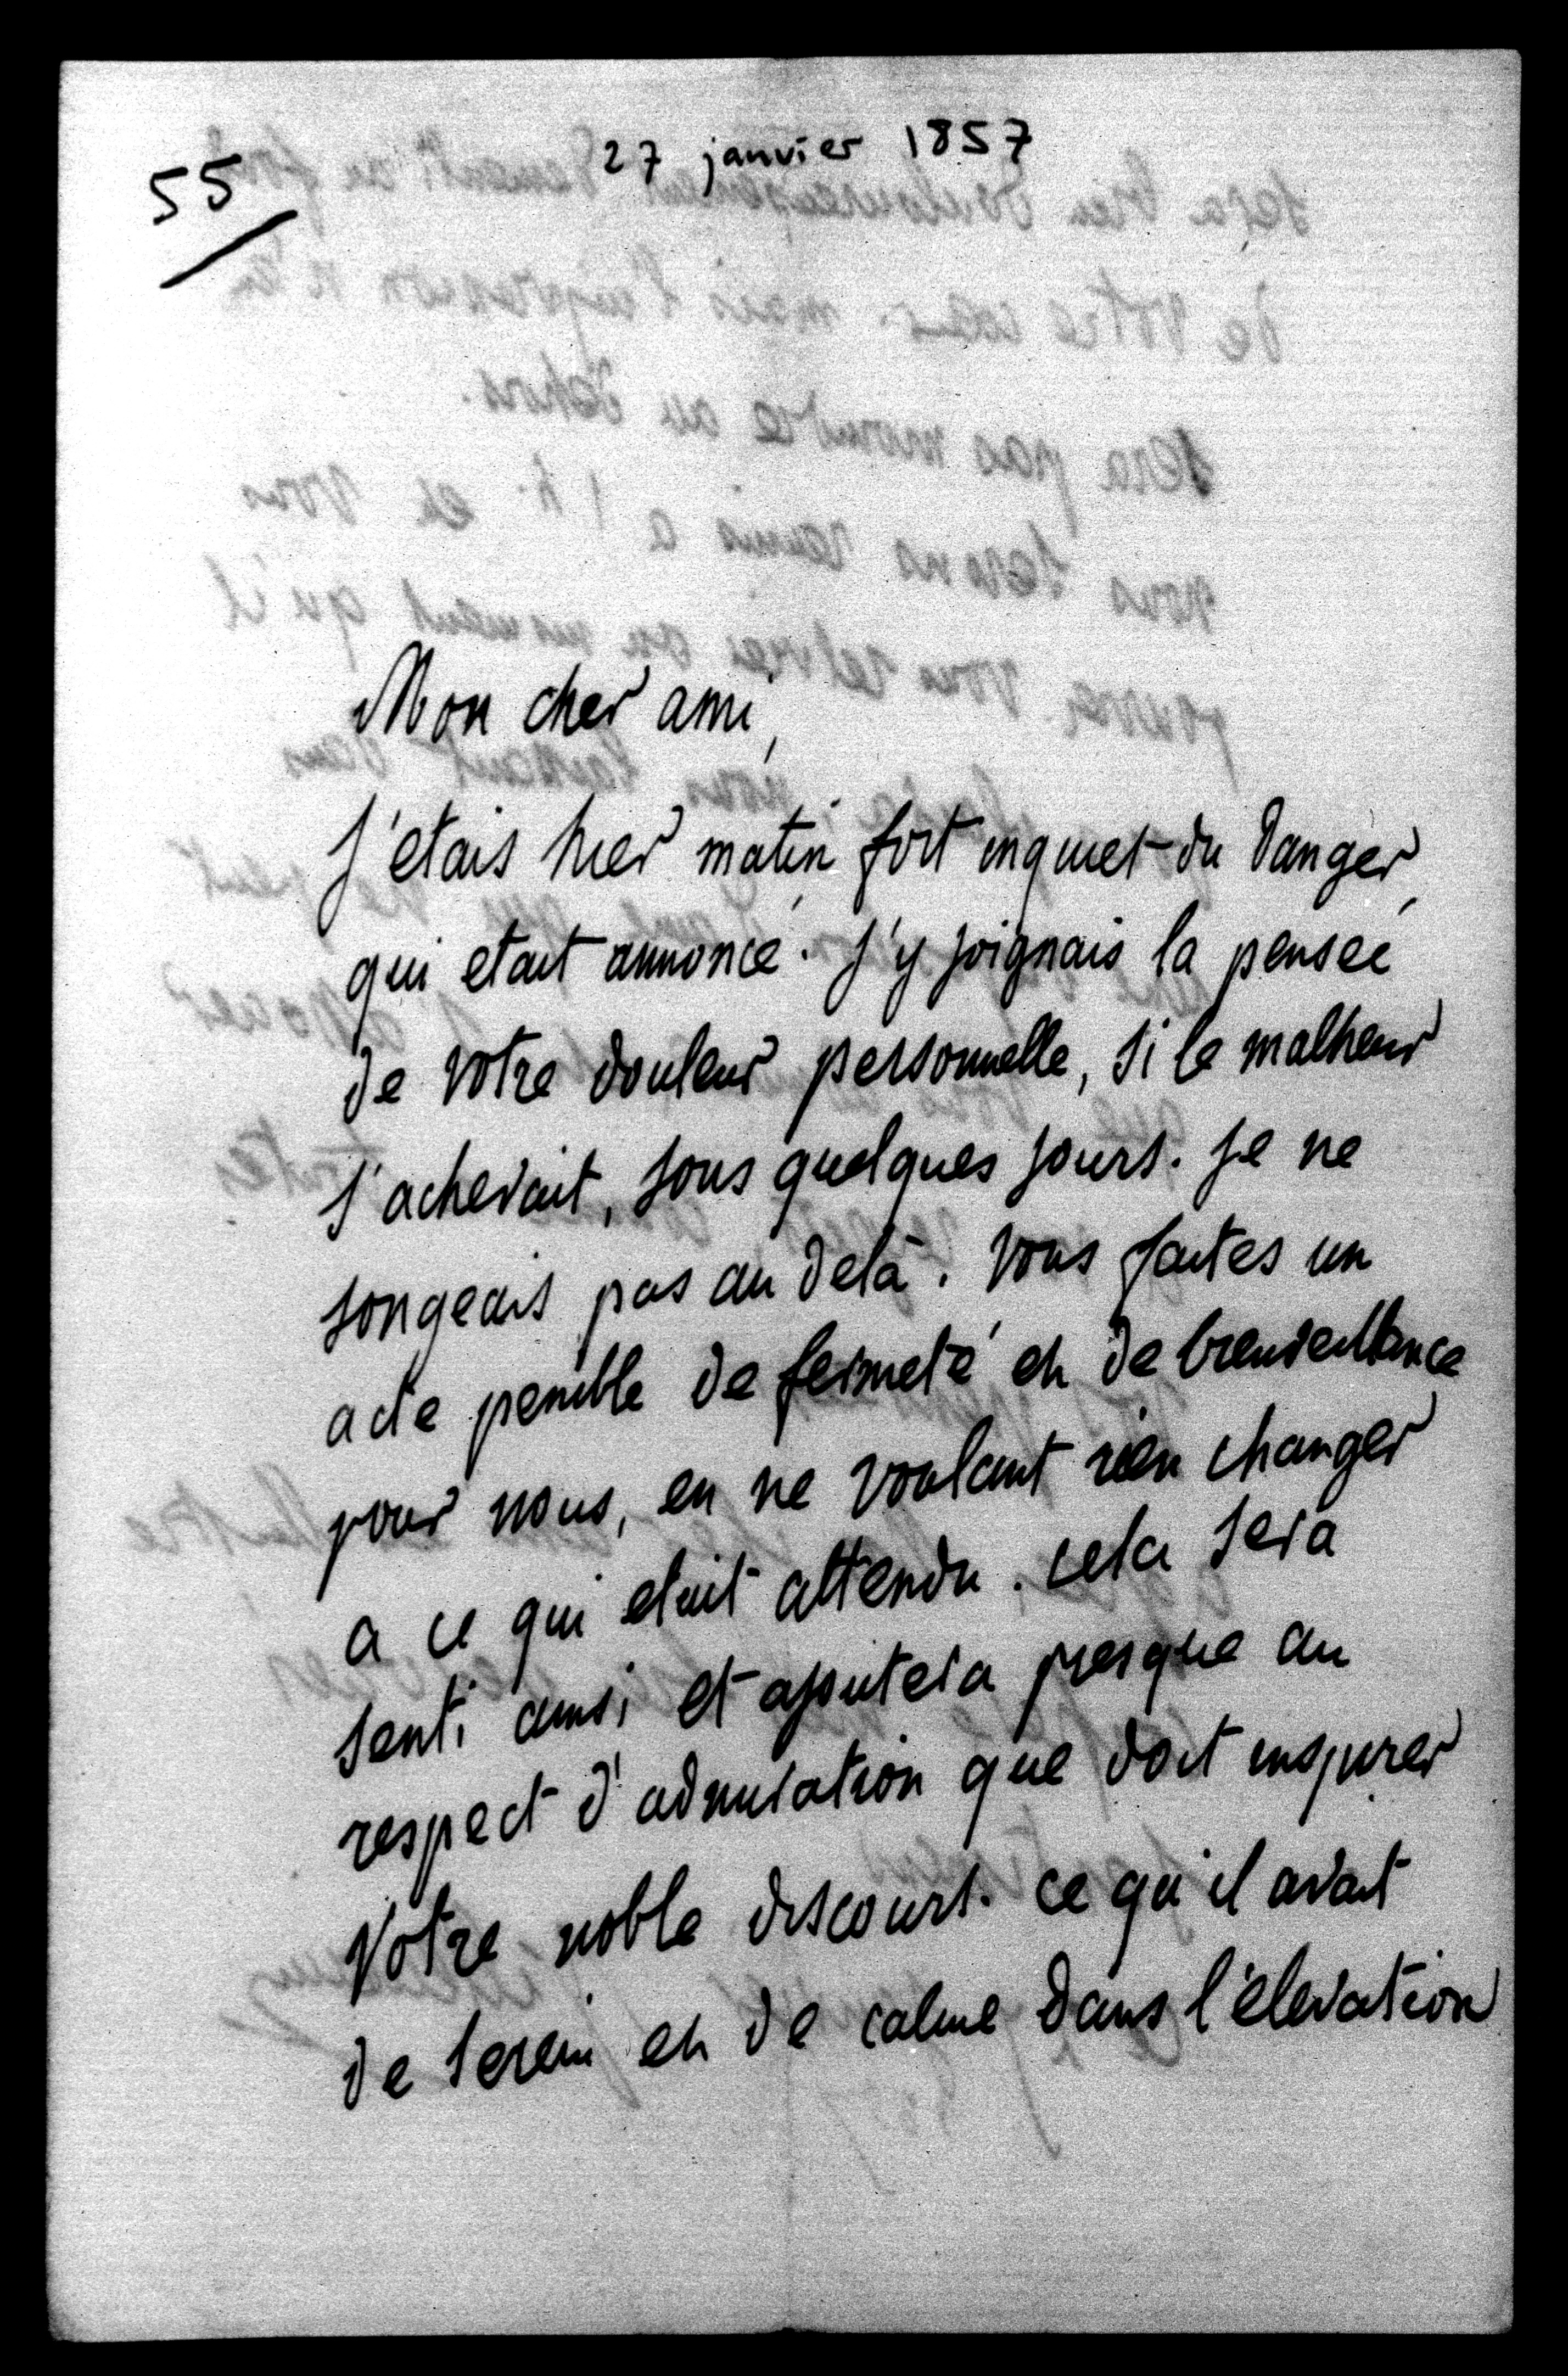 27 janvier 1857
55
Mon cher ami,
J'etais hier matin fort inquiet du danger,
qui etait annoncé. J'y joignais la pensée
de votre douleur personnelle, si le malheur
s'achevait, sous quelques jours. Je ne
songeais pas au delà. Vous faites un
acte penible de fermeté et de bienveillance
pour nous, en ne voulant rien changer
a ce qui etait attendu. cela sera
senti ainsi et ajoutera presque au
respect d'admiration que doit inspirer
Votre noble discours. ce qu'il avait
de serein et de calme dans l'élevation